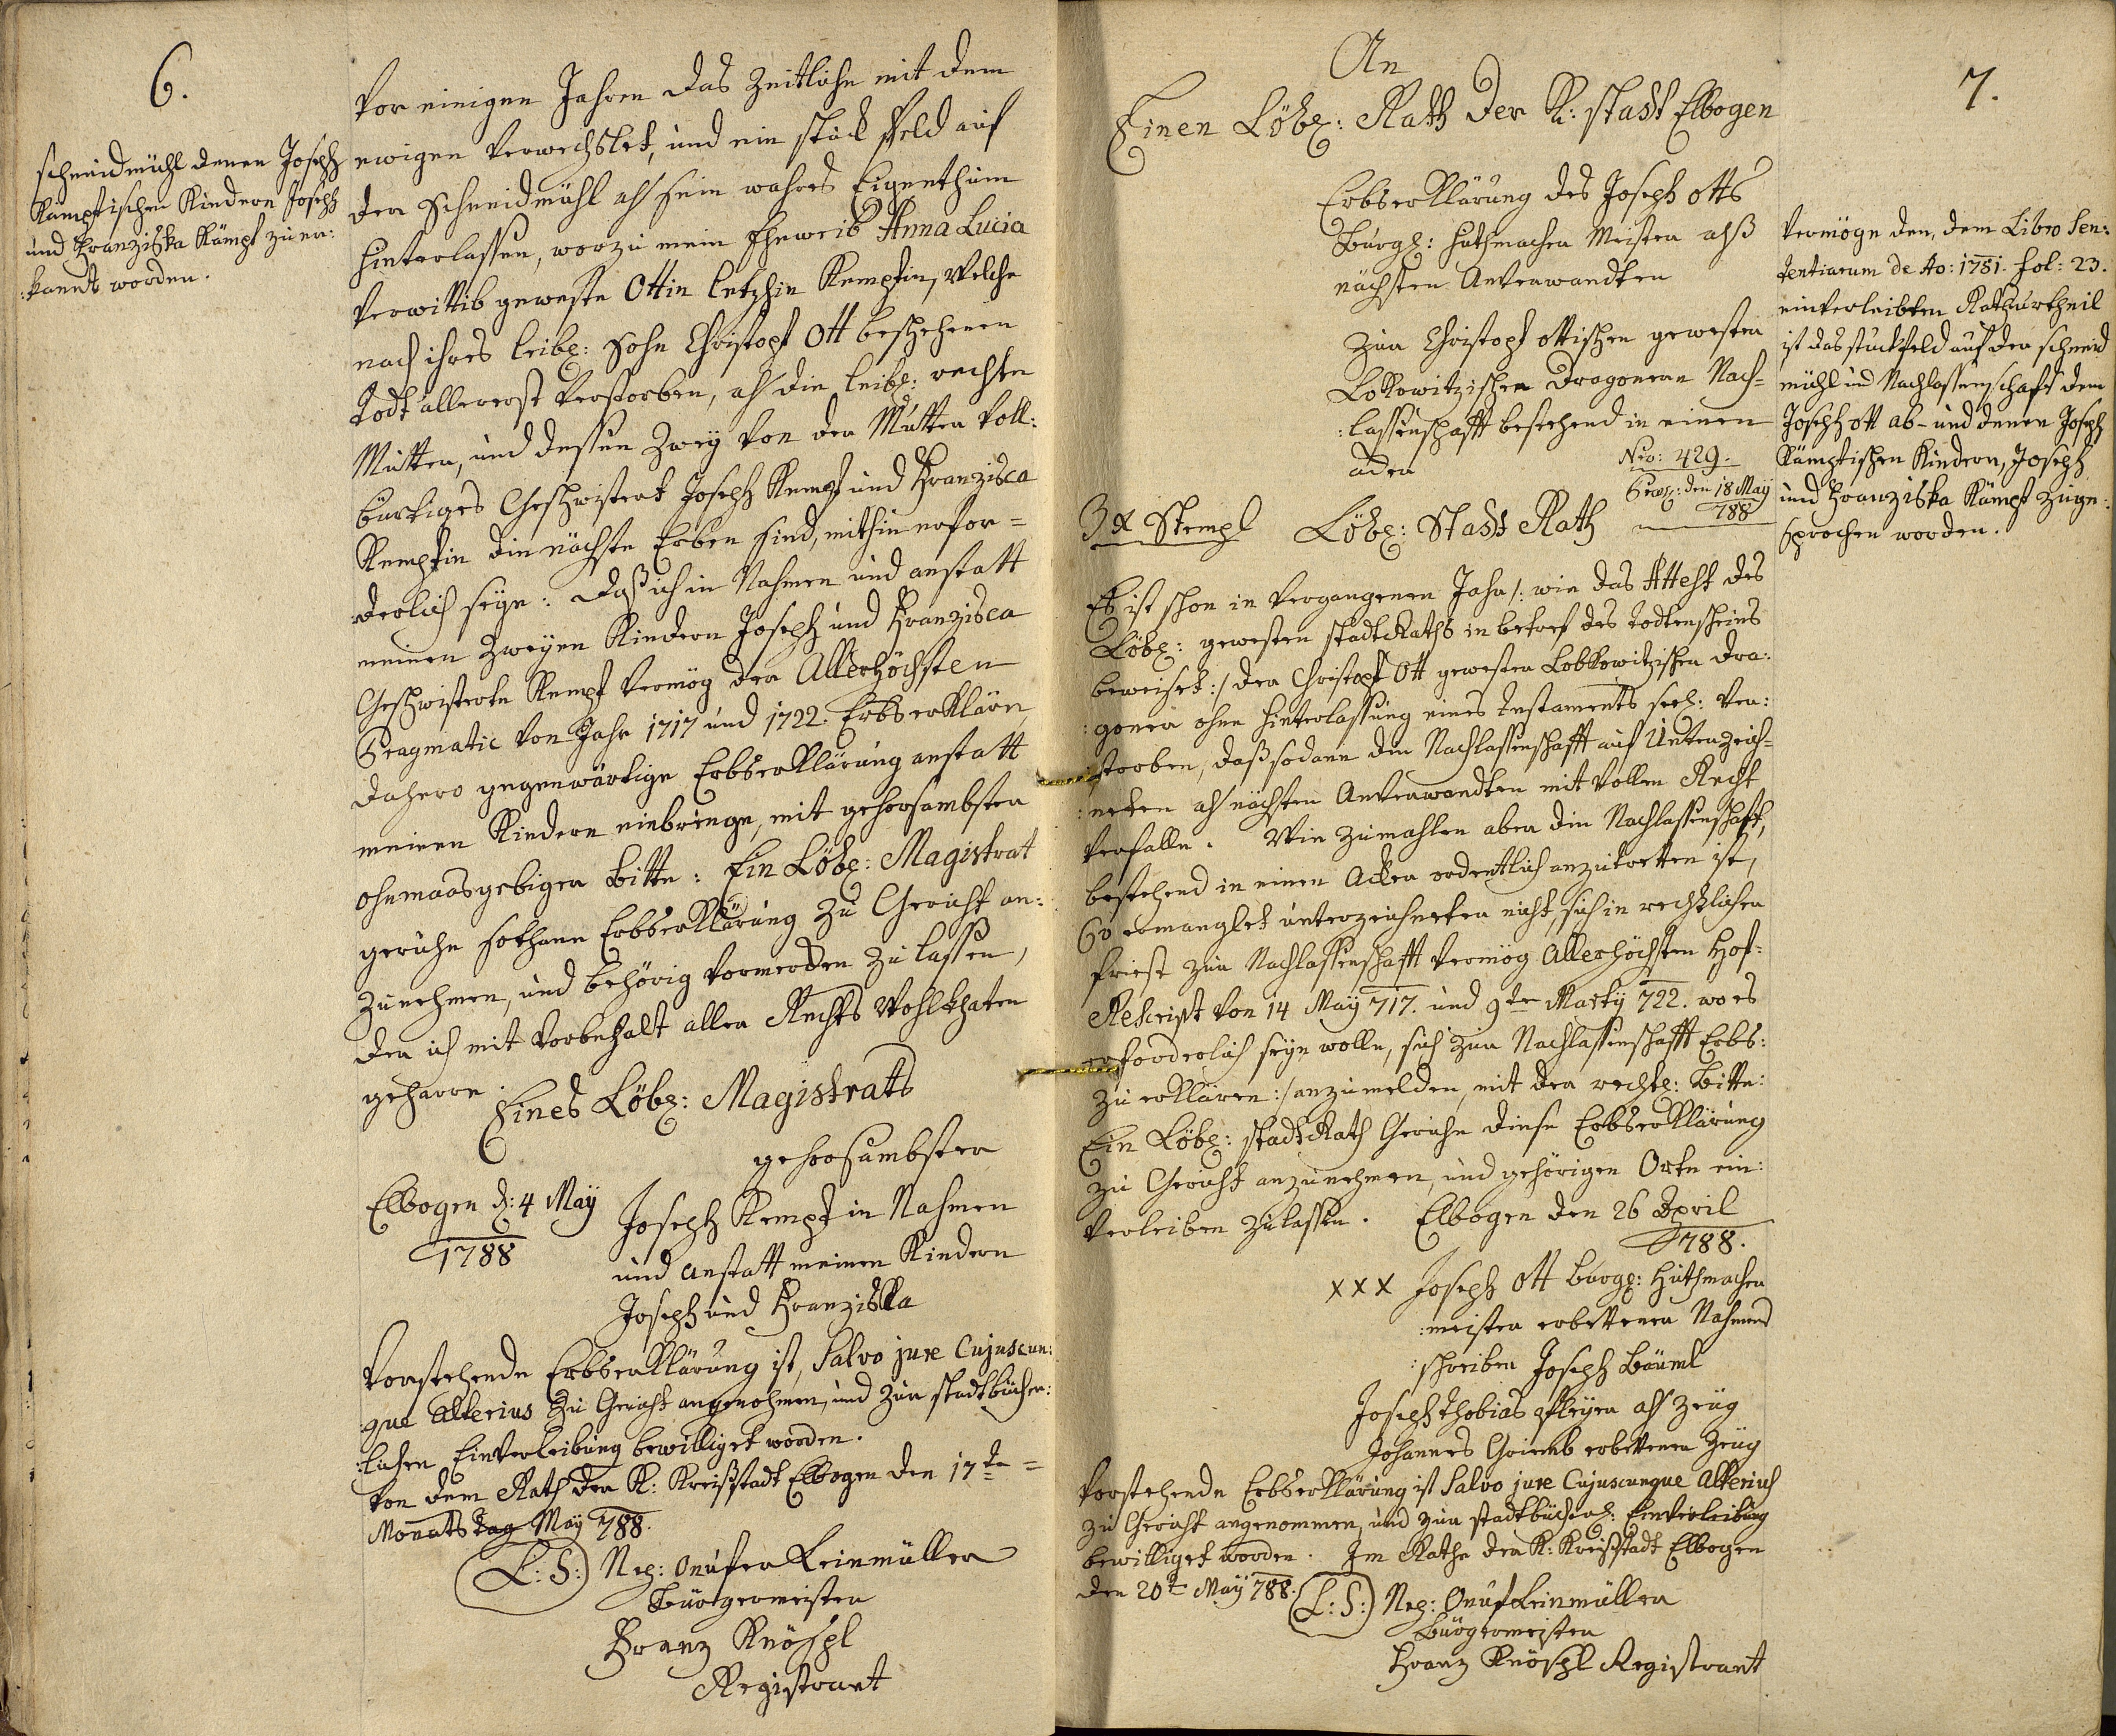 6.
Schneidmühl denen Joseph
Kämpfischen Kindern Joseph
und Franziska Kämpf zu er:
:kandt worden.
Vor einigen Jahren das Zeitliche mit dem
ewigen Verwechslet, und ein stück Feld auf
der Schneidmühl als sein wahres Eigenthum
hinterlassen, worzu mein Eheweib Anna Lucia
Verwittib geweste Ottin letzhin Kempfin, welche
nach ihres leibl: Sohn Christoph Ott beschehenen
Todt allererst Verstorben, als die leibl: rechte
Mutter, und dessen Zwey von der Mutter voll:
bürtiges Geschwistert Joseph Kempf und Franzisca
Kempfin die nächste Erben sind, mithin erfor=
derlich seye: daß ich in Nahmen und anstatt
meinen Zweyen Kindern Joseph und Franzisca
Geschwisterte Kempf Vermög der Allerhöchsten
Pragmatic von Jahr 1717 und 1722. Erbserkläre,
dahero gegenwärtige Erbserklärung anstatt
meinen Kindern einbringe, mit gehorsambster
ohnmaasgebigen bitte: Ein Löbl: Magistrat
geruhe sothane Erbserklärung zu Gericht an:
zunehmen, und behörig vormerken zu lassen,
der ich mit Vorbehalt aller Rechts Wohlthaten
geharre.
Eines Löbl: Magistrats
gehorsambster
Elbogen d: 4 May
1788
Joseph Kempf in Nahmen
und anstatt meinen Kindern
Joseph und Franziska
Vorstehende Erbserklärung ist, Salvo jure Cujuscun:
:que alterius zu Gericht angenohmen, und zur stadtbücher:
:lichen Einverleibung bewilliget worden.
Von dem Rath der K: Kreißstadt Elbogen den 17te =
Monats tag May 788.
L: S: Neg: Onufer Leinmüller
Bürgermeister
Franz Knöspl
Registrant
7.
An
Einen Löbl: Rath der K: stadt Elbogen
Erbserklärung des Joseph Otts
Burgl: Huthmacher Meister alß
nächsten Anverwandten
Zur Christoph Ottischen gewesten
Lobkowitzischen Dragonern Nach=
:lassenschafft bestehend in einen
acker
Nro: 429.
Præs: den 18 May
788
3 x Stempl
Löbl: Stadt Rath
Es ist schon in Vergangenen Jahr /: wie das Attest des
Löbl: gewesten stadtRaths in betref des todtenscheins
beweiset :/ der Christoph Ott gewester Lobkowitzischer Dra:
:goner ohne hinterlassung eines Testaments seel: Ver:
:storben, daß sodann die Nachlassenschafft auf Unterzeich=
:neten als nächsten Anverwandten mit Vollen Recht
Verfalle. Wie zumahlen aber die Nachlassenschafft,
bestehend in einen Acker ordentlich anzutretten ist,
So ermanglet unterzeichneter nicht, sich in rechtlicher
friest zur Nachlassenschafft Vermög Allerhöchsten Hof=
Rescript Von 14 May 717. und 9ten Martij 722. wo es
erforderlich seyn wolle, sich zur Nachlassenschafft Erbs:
zu erklären :/ anzumelden, mit der rechtl: bitte:
Ein Löbl: stadtRath Geruhe diese Erbserklärung
zu Gericht anzunehmen, und gehörigen Orte ein:
Verleiben zu lassen. Elbogen den 26 April
788.
xxx Joseph Ott burgl: Huthmacher
:meister erbettener Nahmens
:schreiber Joseph Bäuml
Joseph Thobias als Zeug
Johannes erbettener Zeug
Vorstehende Erbserklärung ist Salvo jure Cujuscunque Alterius
zu Gericht angenommen, und zur stadtbücherl: Einverleibung
bewilliget worden. Im Rathe der K: Kreißstadt Elbogen
den 20te May 788. L: S: Neg: Onuf Leinmüller
Bürgermeister
Franz Knöspl Registrant
Vermöge den, dem Libro Sen:
tentiarum de Ao: 1781. fol: 23.
einverleibten Rathsurtheil
ist das stuckfeld auf der schneid
mühl und Nachlassenschaft dem
Joseph Ott ab- und denen Joseph
Kämpfischen Kindern, Joseph
und Franziska Kämpf zuge:
sprochen worden.